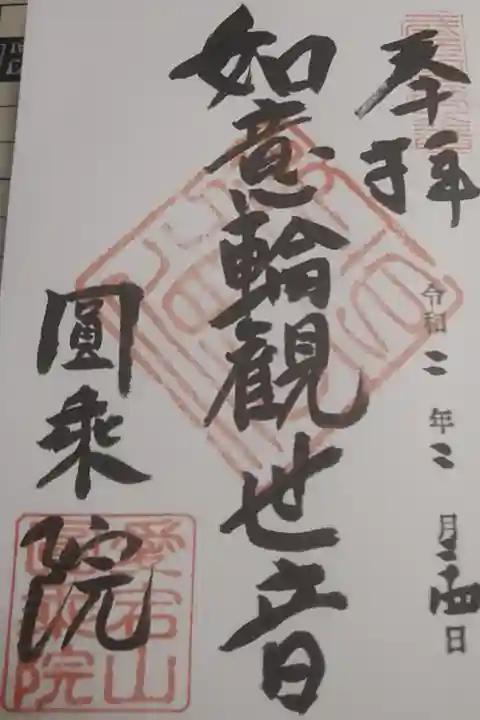 奉拝
令和二年二月二十四日
如意輪観世音
圓乗院
愛宕山
圓乗院